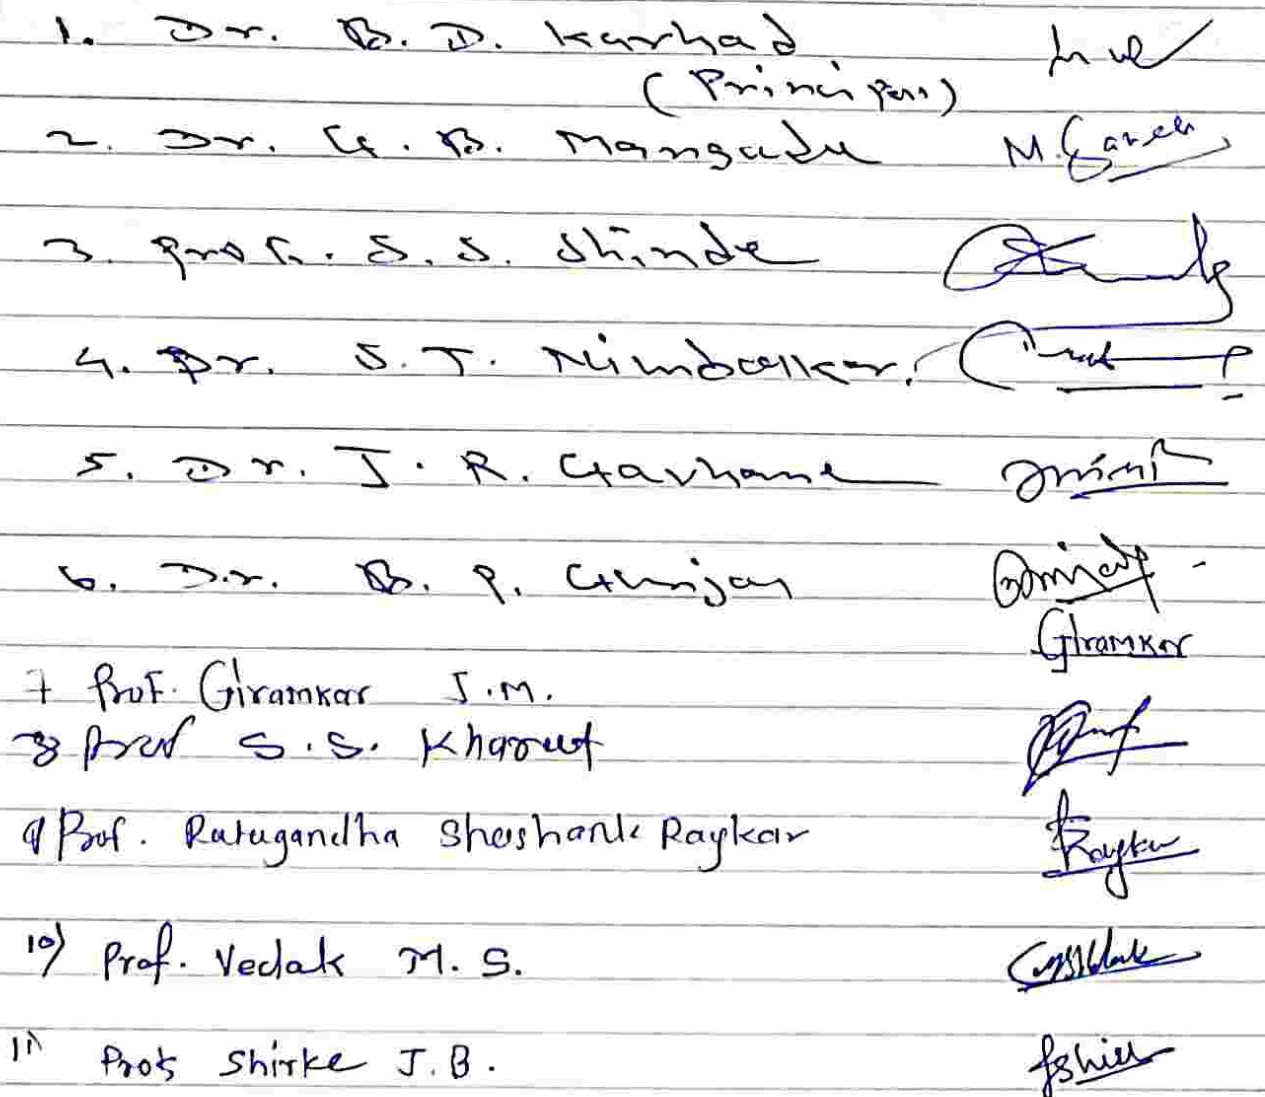 1. Dr. B. D. Karhad
(Principal)
2. Dr. G. B. Mangade M. Ganesh
3. Prof. S. S. Shinde
4. Dr. S. T. Nimbalkar.
5. Dr. J. R. Gavhane
6. Dr. B. P. Gunjay
Giramkar
7 Prof. Giramkar J.M.
8 Prof S.S. Kharut
9 Prof. Rutugandha Shashank Raykar Raykar
10) Prof. Vedak M. S.
11) Prof Shirke J.B.